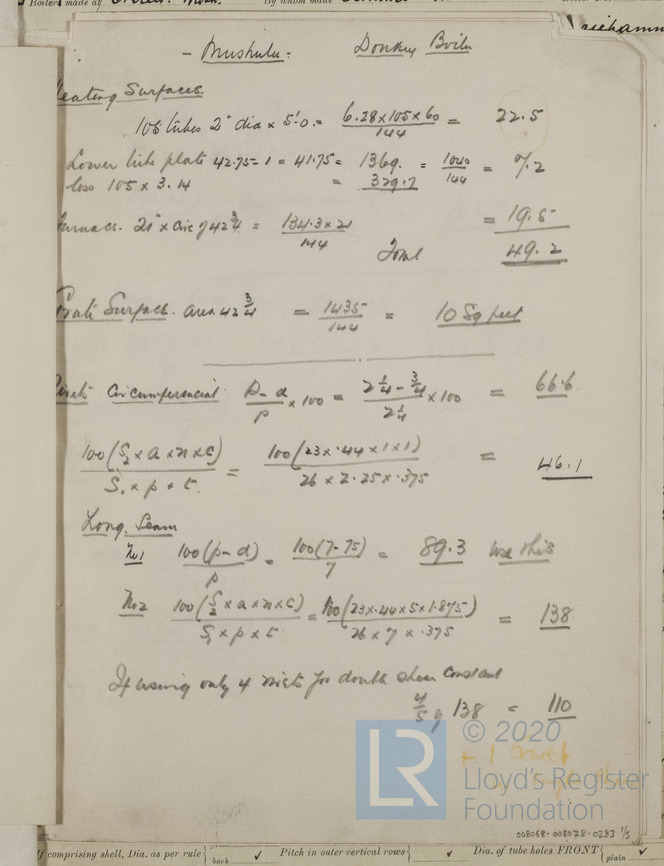 Boilers made at By whom made
- Mushulu:- Donkey Boiler
Heating Surfaces.
105 tubes 2" dia x 5'-0. = 6.28 x 105 x 60 / 144 = 22.5
Lower tube plate 42.75 - 1 = 41.75 = 1369. = 1040 / 144 = 7.2
less 105 x 3.14 = 329.7
Furnace. 21" x Circ of 42 3/4 = 134.3 x 21 / 144 = 19.5
Total 49.2
Grate Surface. area 42 3/4 = 1435 / 144 = 10 Sq feet
Rivets Circumferencial p - d / p x 100 = 2 1/4 - 3/4 / 2 1/4 x 100 = 66.6
100 (S2 x a x n x c) / S1 x p x t. = 100 (23 x .44 x 1 x 1) / 26 x 2.25 x .375 = 46.1
Long. Seam
No1 100 (p - d) / p = 100 (7 - 75) / 7 = 89.3 use this
No2 100 (S2 x a x n x c) / S1 x p x t = 100 (23 x .44 x 5 x 1.875) / 26 x 7 x .375 = 138
If using only 4 rivets for double shear constant
4/5 of 138 = 110
© 2020
LR Lloyd's Register
Foundation
008068-008078-0283 1/5
If comprising shell, Dia. as per rule { back Pitch in outer vertical rows { Dia. of tube holes FRONT { plain